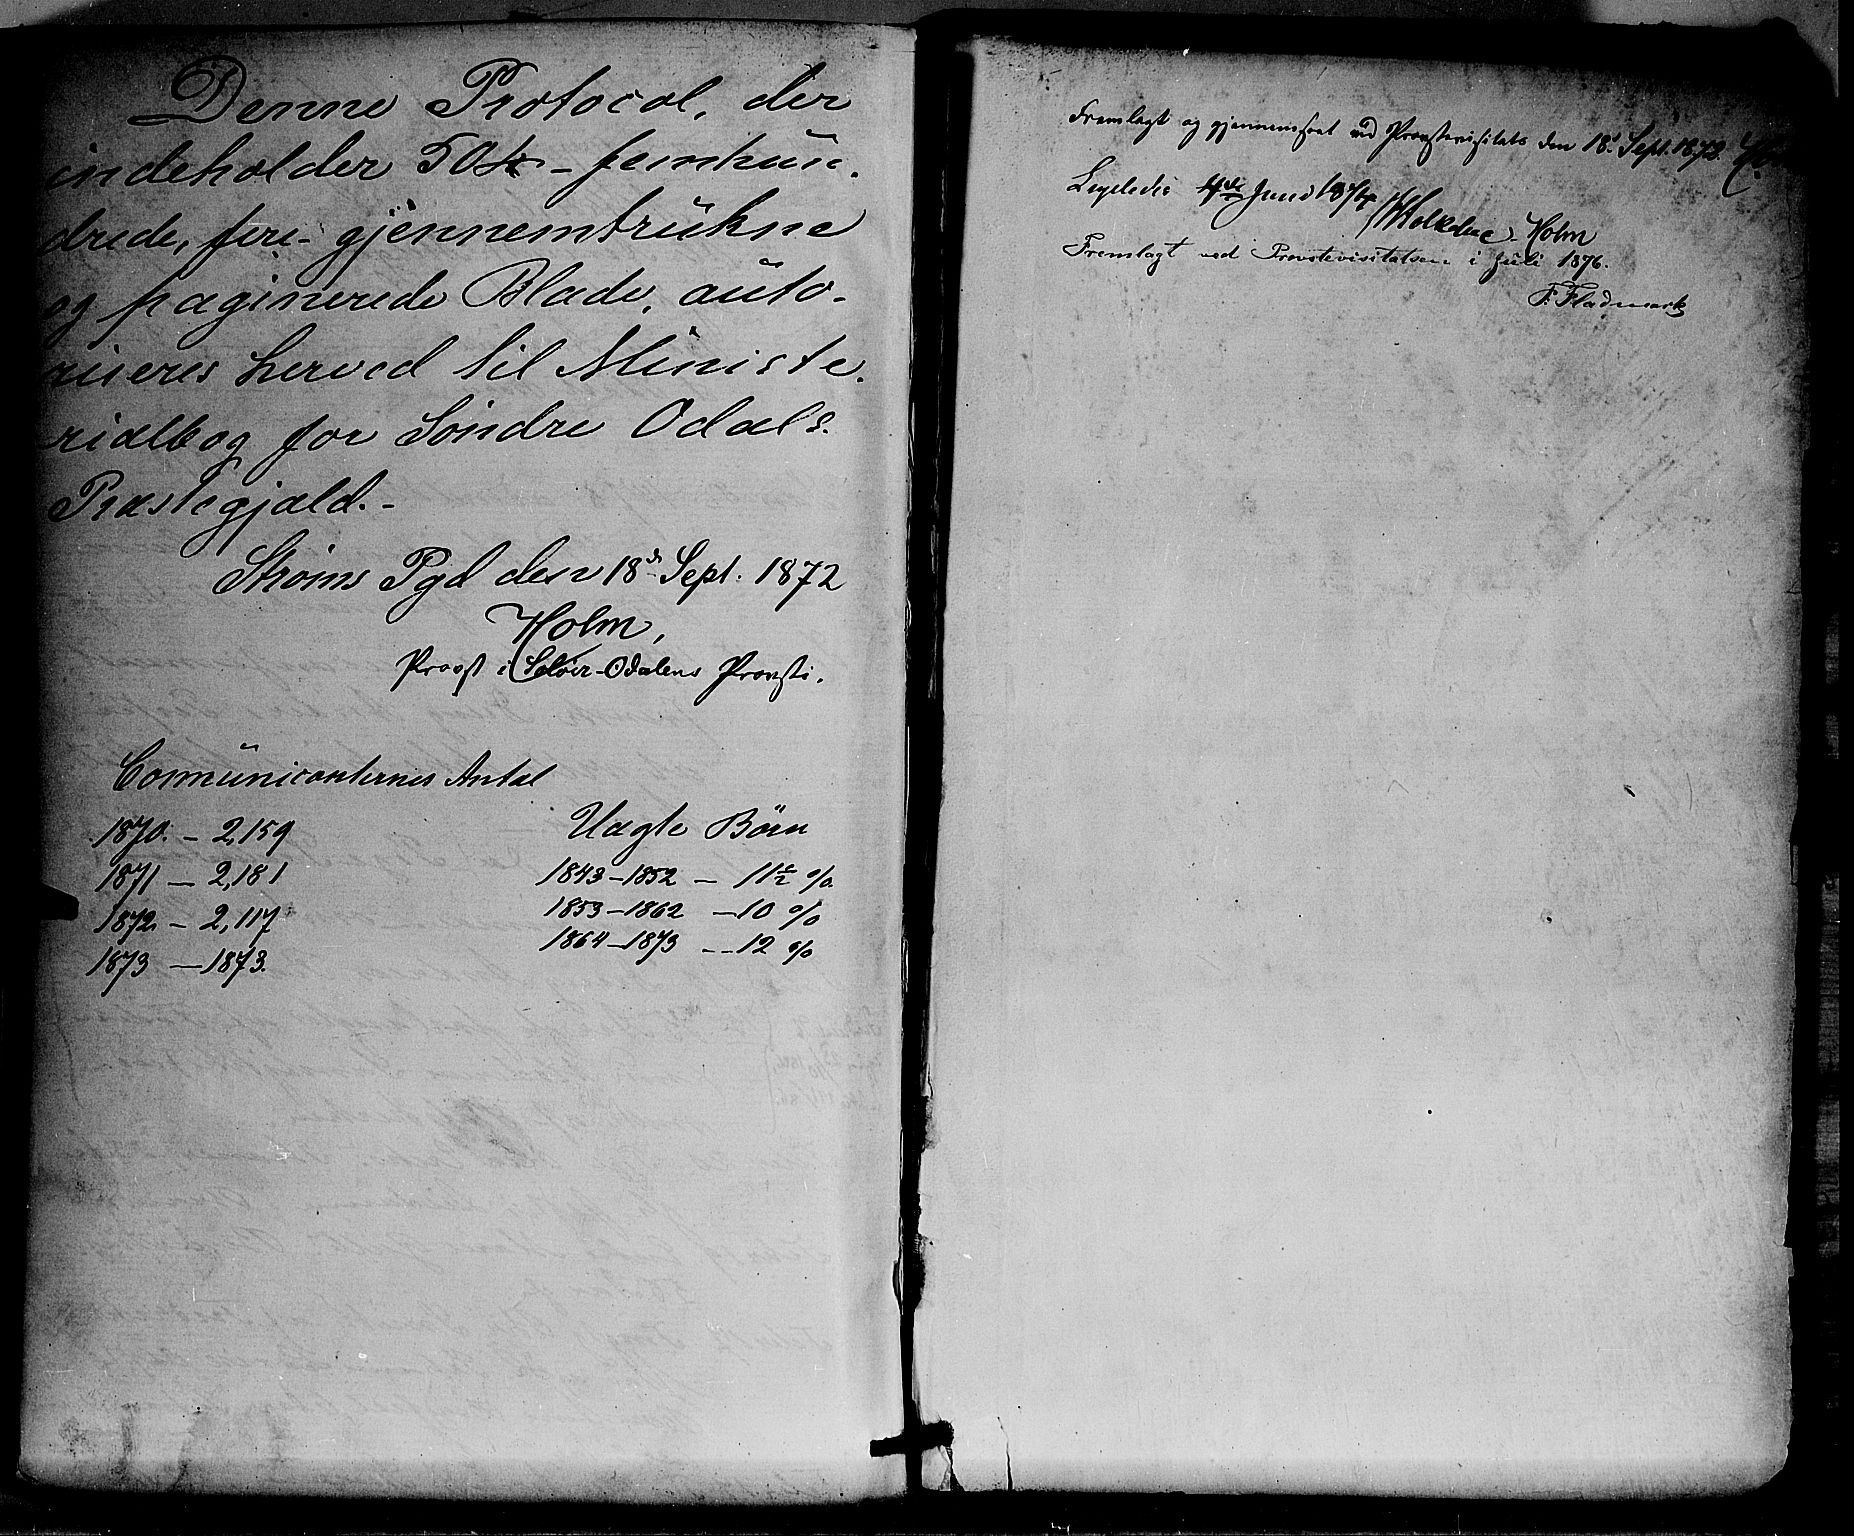 Denne Protocol, der
indeholder 504 - femhun-
drede, fire - gjennemtrukne
og paginerede Blade, auto-
riseres herved til Ministe-
rialbog for Söndre Odals
Præstegjæld. -
Ströms Pgd den 18de Sept. 1872
Holm,
Provst i Solöer-Odalens Provsti.
Communicanternes Antal
1870. - 2,159
1871 - 2,181
1872. - 2,117
1873 - 1873.
Uægte Börn
1843-1852 - 11½ %.
1853-1862 - 10 %
1864-1873 - 12 %
Fremlagt og gjennemseet ved Provstevisitats den 18. Sept. 1873. Holm
Ligeledes 4de Juni 1874 Holm
Fremlagt ved Provstevisitatsen i Juli 1876.
F. Fladmark